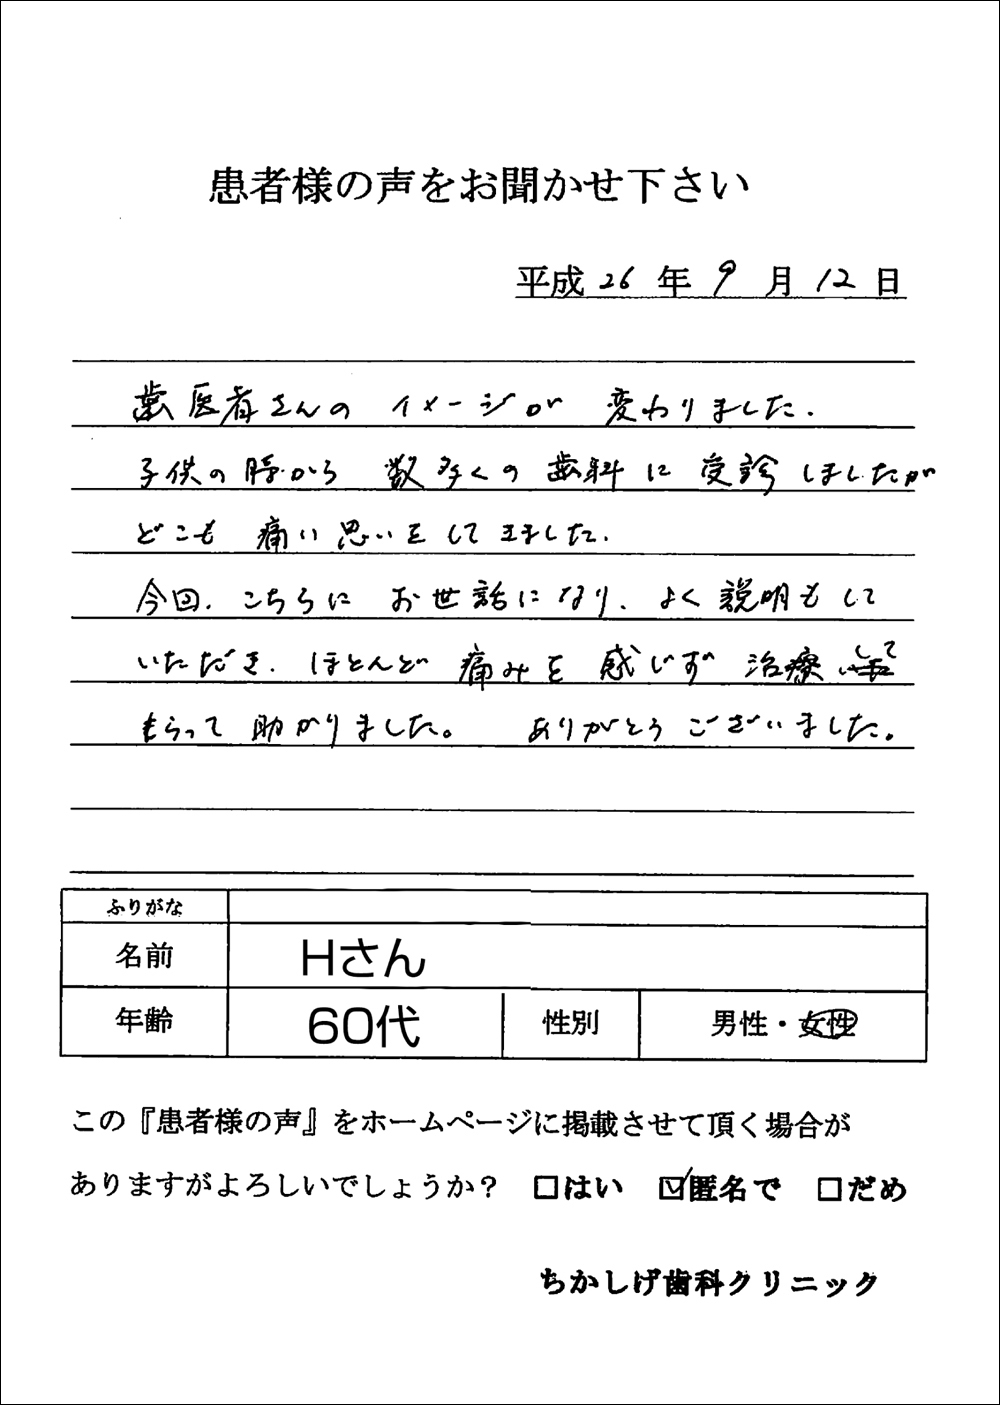 患者様の声をお聞かせ下さい
平成26年9月12日
歯医者さんの イメージが 変わりました.
子供の時から 数多くの 歯科に 受診しましたが
どこも 痛い思いをしてきました.
今回、こちらに お世話になり、よく説明もして
いただき、ほとんど 痛みを 感じず 治療して
もらって 助かりました。 ありがとうございました。
ふりがな
名前 Hさん
年齢 60代 性別 男性・女性
この『患者様の声』をホームページに掲載させて頂く場合が
ありますがよろしいでしょうか？ □はい ☑匿名で □だめ
ちかしげ歯科クリニック